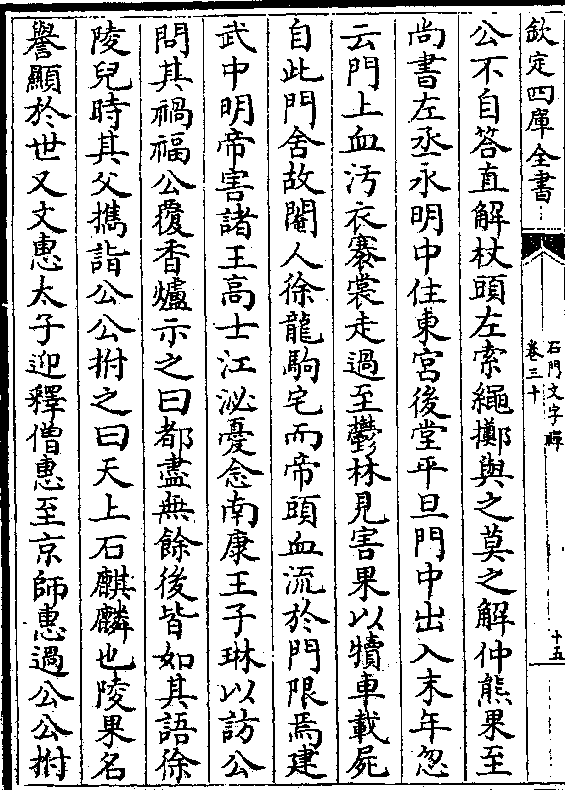 欽定四庫全書
石門文字禪
卷三十
十五
公不自答直解杖頭左索繩擲與之莫之解仲熊果至
尚書左丞永明中住東宮後堂平旦門中出入末年忽
云門上血汚衣褰裳走過至鬱林見害果以犢車載屍
自此門舍故閹人徐龍駒宅而帝頭血流於門限焉建
武中明帝害諸王高士江泌憂念南康王子琳以訪公
問其禍福公覆香爐示之曰都盡無餘後皆如其語徐
陵兒時其父攜詣公公拊之曰天上石麒麟也陵果名
譽顯於世又文惠太子迎釋僧惠至京師惠過公公拊